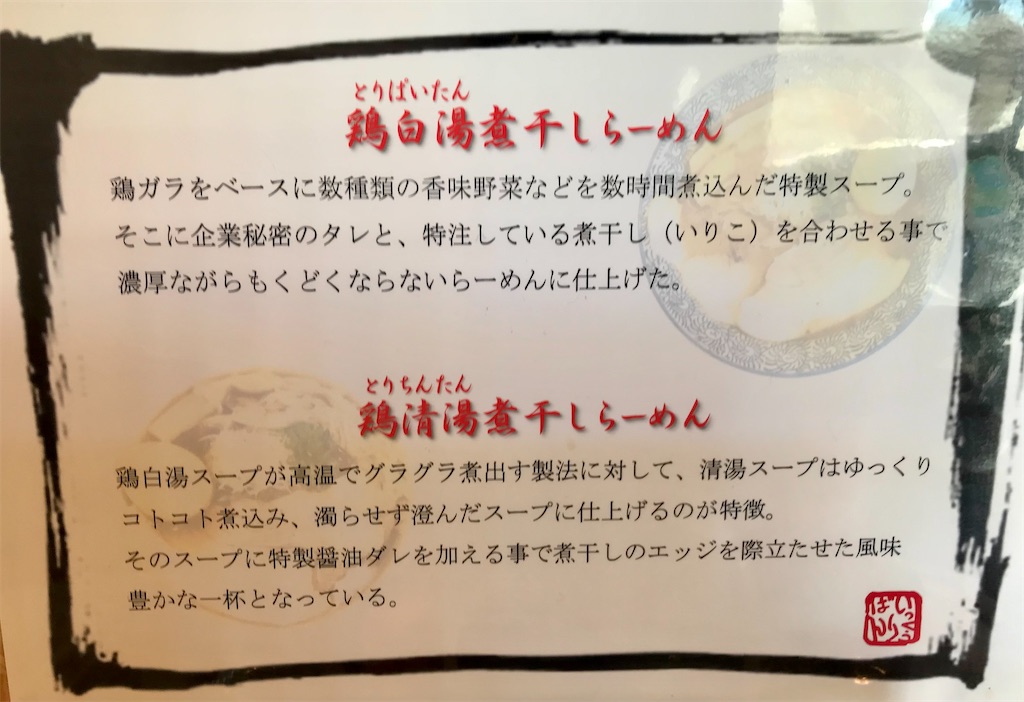 とりぱいたん
鶏白湯煮干しらーめん
鶏ガラをベースに数種類の香味野菜などを数時間煮込んだ特製スープ。
そこに企業秘密のタレと、特注している煮干し（いりこ）を合わせる事で
濃厚ながらもくどくならないらーめんに仕上げた。
とりちんたん
鶏清湯煮干しらーめん
鶏白湯スープが高温でグラグラ煮出す製法に対して、清湯スープはゆっくり
コトコト煮込み、濁らせず澄んだスープに仕上げるのが特徴。
そのスープに特製醤油ダレを加える事で煮干しのエッジを際立たせた風味
豊かな一杯となっている。